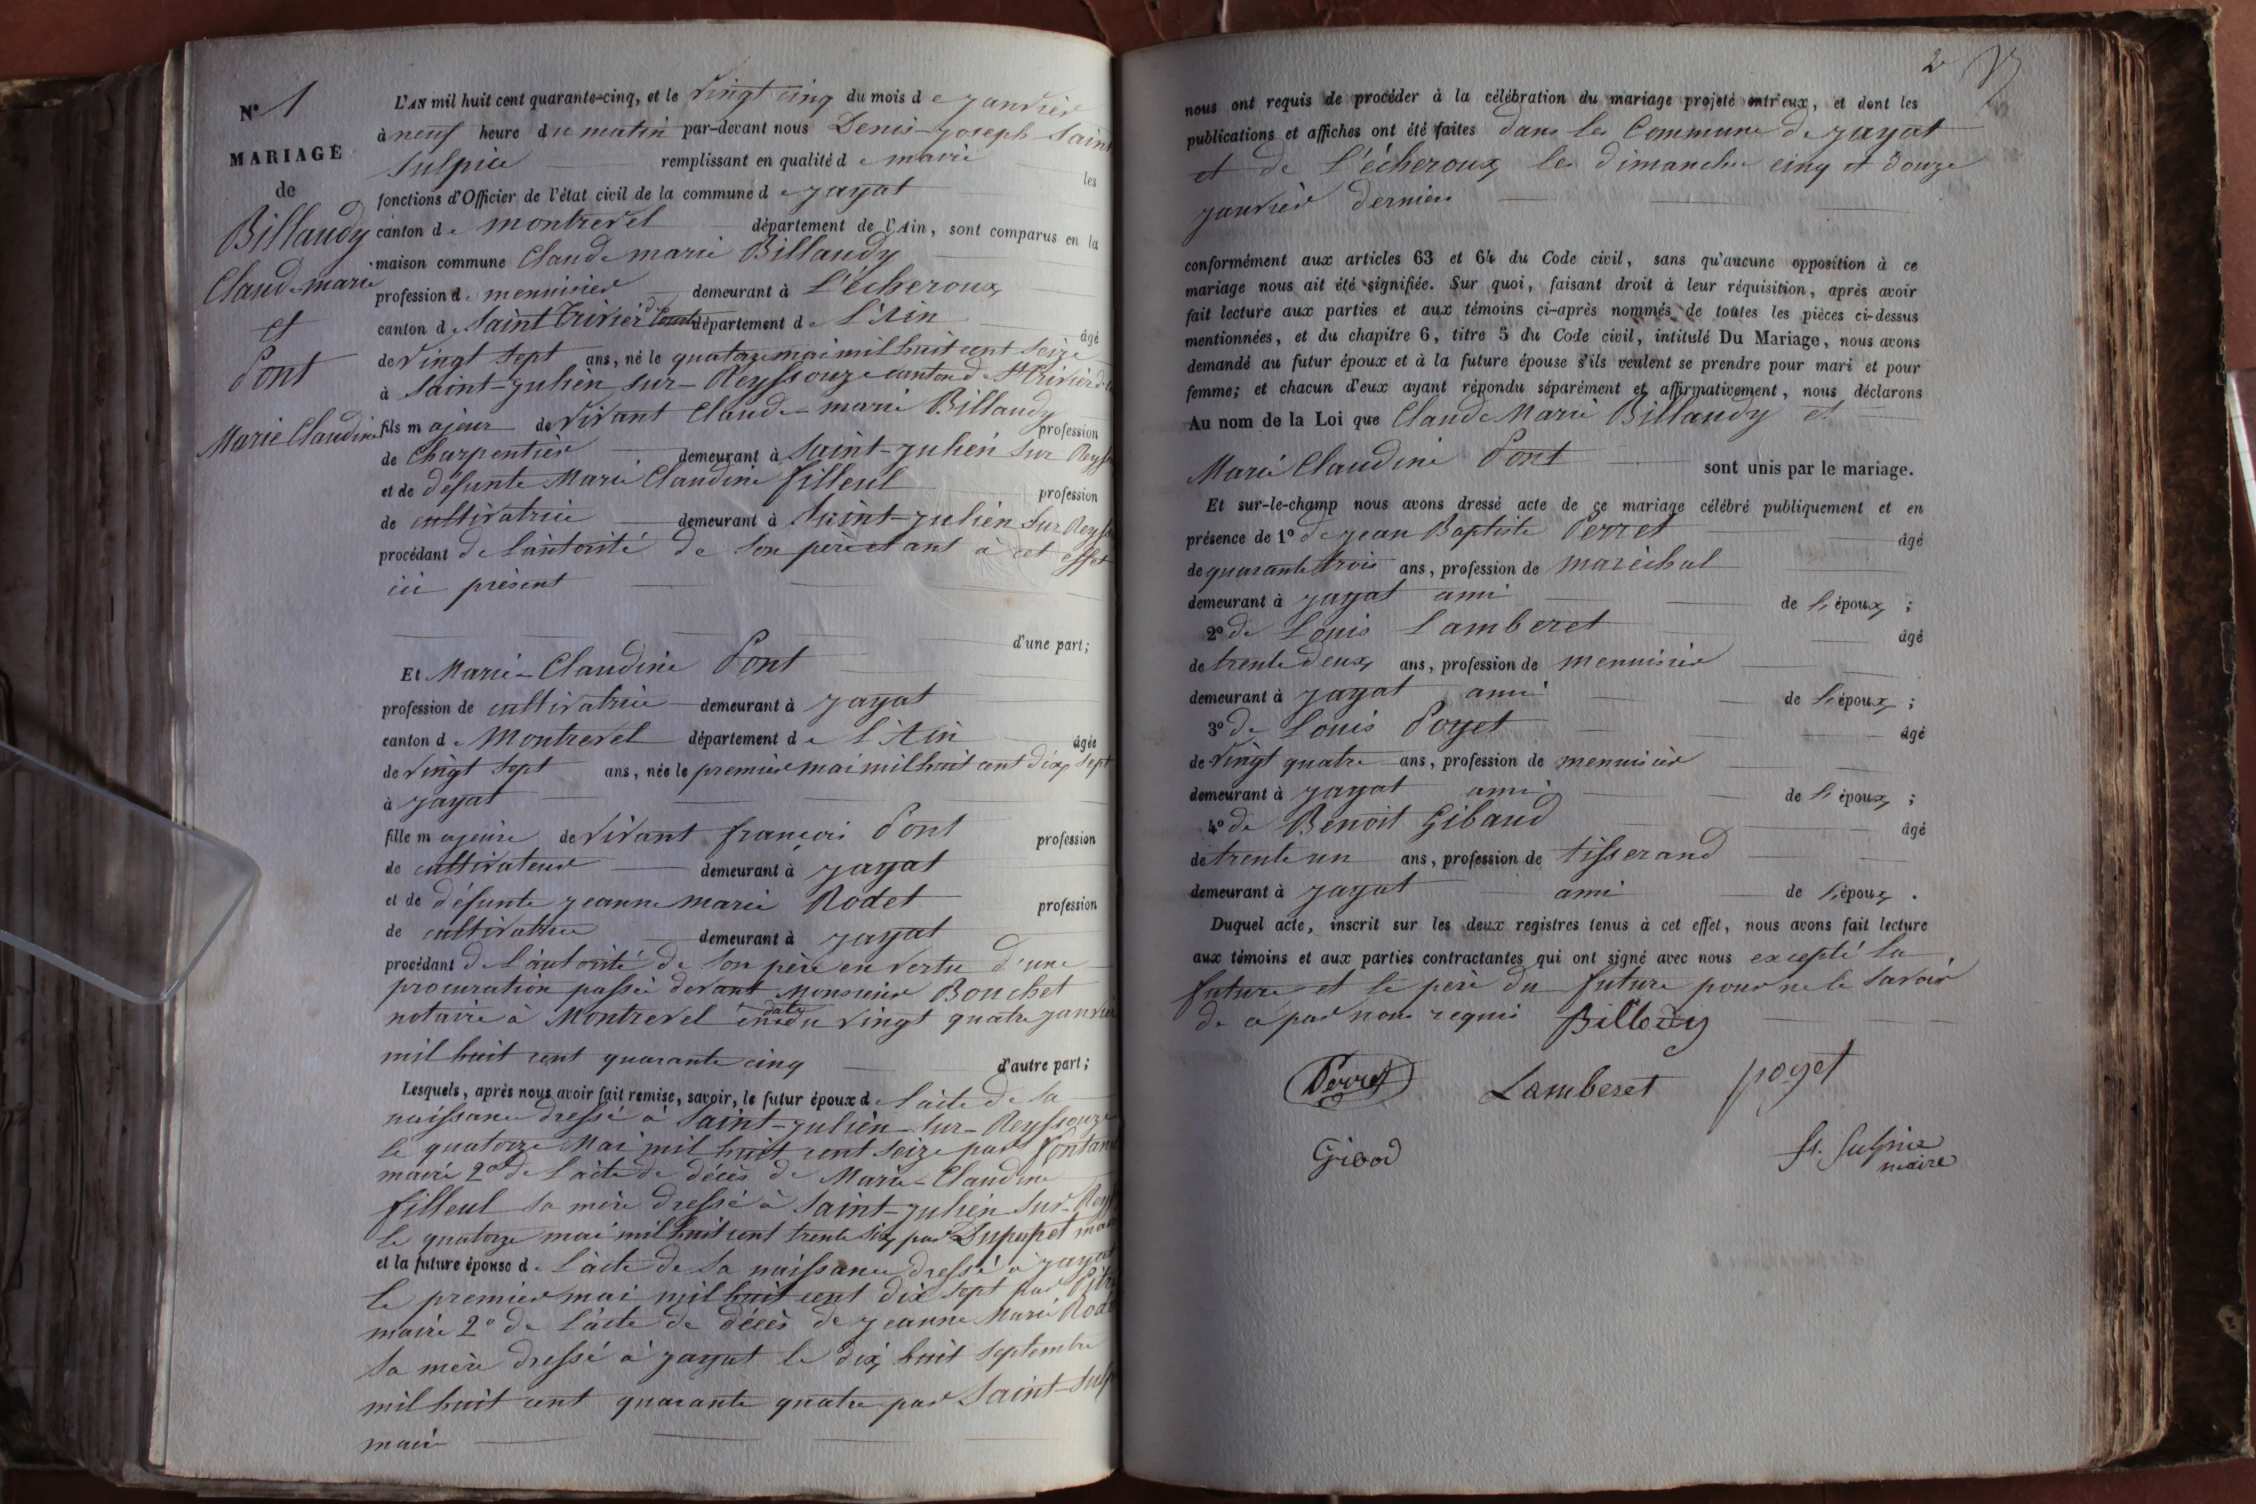 N° 1
MARIAGE
de
Billaudy
Claude marie
et
Pont
Marie Claudine
L'AN mil huit cent quarante-cinq, et le vingt cinq du mois de janvier
à neuf heure du matin par-devant nous Denis-joseph Saint
Sulpice remplissant en qualité de maire les
fonctions d'Officier de l'état civil de la commune de jayat
canton de montrevel département de l'Ain, sont comparus en la
maison commune Claude marie Billaudy
profession de menuisier demeurant à L'écheroux
canton de Saint Trivier de Courtes département de L'Ain âgé
de vingt sept ans, né le quatorze mai mil huit cent seize
à Saint-julien-sur-Reyssouze canton de St Trivier
fils majeur de vivant Claude-marie Billaudy profession
de Charpentier demeurant à Saint-julien sur
et de défunte Marie Claudine filleul profession
de cultivatrice demeurant à Saint-julien sur
procédant de l'autorité de son père etant à cet effet
ici présent
d'une part;
Et Marie-Claudine Pont
profession de cultivatrice demeurant à jayat
canton de Montrevel département de L'Ain âgée
de vingt sept ans, née le premier mai mil huit cent dix sept
à jayat
fille majeure de vivant françois Pont profession
de cultivateur demeurant à jayat
et de défunte jeanne marie Rodet profession
de cultivatrice demeurant à jayat
procédant de l'autorité de son père en vertu d'une
procuration passée devant Monsieur Bouchet
notaire à Montrevel en date du vingt quatre janvier
mil huit cent quarante cinq d'autre part;
Lesquels, après nous avoir fait remise, savoir, le futur époux de l'acte de sa
naissance dressé à Saint-julien-sur-Reyssouze
le quatorze Mai mil huit cent seize par
maire 2° de l'acte de décès de Marie-Claudine
filleul sa mère dressé à Saint-julien sur
le quatorze mai mil huit cent trente six par Dupupet
et la future épouse de l'acte de sa naissance dressé à jayat
le premier mai mil huit cent dix sept par
maire 2° de l'acte de décès de jeanne Marie
sa mère dressé à jayat le dix huit septembre
mil huit cent quarante quatre par Saint-
maire
2
nous ont requis de procéder à la célébration du mariage projeté entr'eux, et dont les
publications et affiches ont été faites dans les Commune de jayat
et de L'écheroux les dimanche cinq et douze
janvier dernier
conformément aux articles 63 et 64 du Code civil, sans qu'aucune opposition à ce
mariage nous ait été signifiée. Sur quoi, faisant droit à leur réquisition, après avoir
fait lecture aux parties et aux témoins ci-après nommés de toutes les pièces ci-dessus
mentionnées, et du chapitre 6, titre 5 du Code civil, intitulé Du Mariage, nous avons
demandé au futur époux et à la future épouse s'ils veulent se prendre pour mari et pour
femme; et chacun d'eux ayant répondu séparément et affirmativement, nous déclarons
Au nom de la Loi que Claude Marie Billaudy et
Marie Claudine Pont sont unis par le mariage.
Et sur-le-champ nous avons dressé acte de ce mariage célébré publiquement et en
présence de 1° de jean Baptiste Perret âgé
de quarante trois ans, profession de maréchal
demeurant à jayat ami de l'époux;
2° de Louis Lamberet âgé
de trente deux ans, profession de menuisier
demeurant à jayat ami de l'époux;
3° de Louis Poyet âgé
de vingt quatre ans, profession de menuisier
demeurant à jayat ami de l'époux;
4° de Benoit Gibaud âgé
de trente un ans, profession de tisserand
demeurant à jayat ami de l'époux.
Duquel acte, inscrit sur les deux registres tenus à cet effet, nous avons fait lecture
aux témoins et aux parties contractantes qui ont signé avec nous excepté la
future et le père du future pour ne le savoir
de ce par nous requis Billody
Perret Lamberet poyet
Gibod St. Sulpice
maire